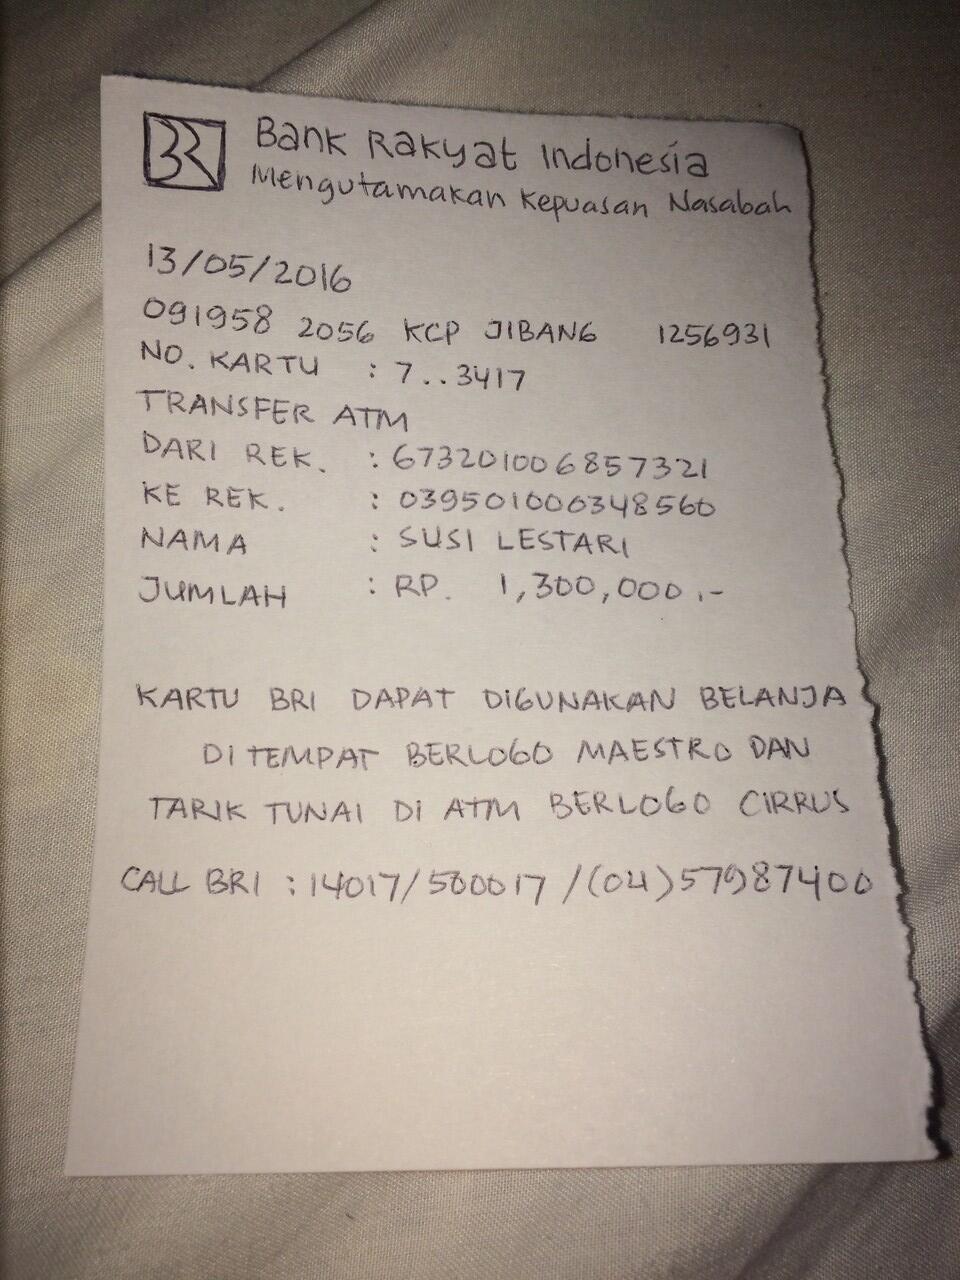 BR Bank Rakyat Indonesia
Mengutamakan Kepuasan Nasabah
13/05/2016
091958 2056 KCP JIBANG 1256931
NO. KARTU : 7..3417
TRANSFER ATM
DARI REK. : 673201006857321
KE REK. : 039501000348560
NAMA : SUSI LESTARI
JUMLAH : RP. 1,300,000.-
KARTU BRI DAPAT DIGUNAKAN BELANJA
DI TEMPAT BERLOGO MAESTRO DAN
TARIK TUNAI DI ATM BERLOGO CIRRUS
CALL BRI : 14017/500017 /(04)57987400